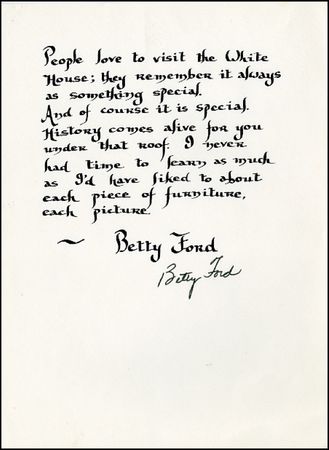 People love to visit the White
House; they remember it always
as something special.
And of course it is special.
History comes alive for you
under that roof. I never
had time to learn as much
as I'd have liked to about
each piece of furniture,
each picture.
~ Betty Ford
Betty Ford